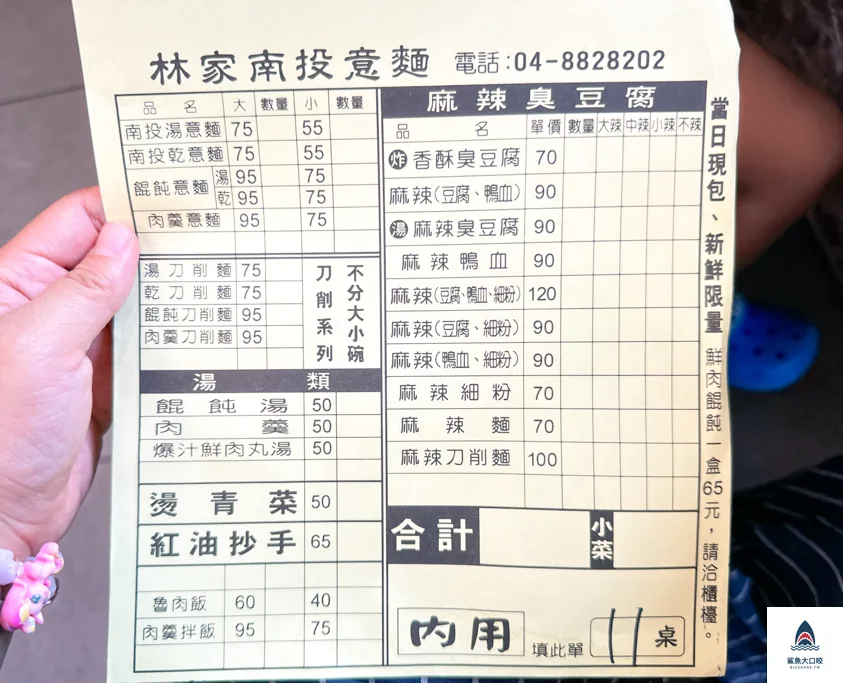 林家南投意麵 電話:04-8828202
品名 大 數量 小 數量
南投湯意麵 75 55
南投乾意麵 75 55
餛飩意麵 湯 95 75
乾 95 75
肉羹意麵 95 75
湯刀削麵 75
乾刀削麵 75
餛飩刀削麵 95
肉羹刀削麵 95
刀削系列
不分大小碗
湯類
餛飩湯 50
肉羹 50
爆汁鮮肉丸湯 50
燙青菜 50
紅油抄手 65
魯肉飯 60 40
肉羹拌飯 95 75
麻辣臭豆腐
品名 單價 數量 大辣 中辣 小辣 不辣
炸 香酥臭豆腐 70
麻辣(豆腐、鴨血) 90
湯 麻辣臭豆腐 90
麻辣鴨血 90
麻辣(豆腐、鴨血、細粉) 120
麻辣(豆腐、細粉) 90
麻辣(鴨血、細粉) 90
麻辣細粉 70
麻辣麵 70
麻辣刀削麵 100
合計 小菜
內用 填此單 11 桌
當日現包、新鮮限量 鮮肉餛飩一盒65元,請洽櫃檯。
鯊魚大口咬
BIGSHARK.TW